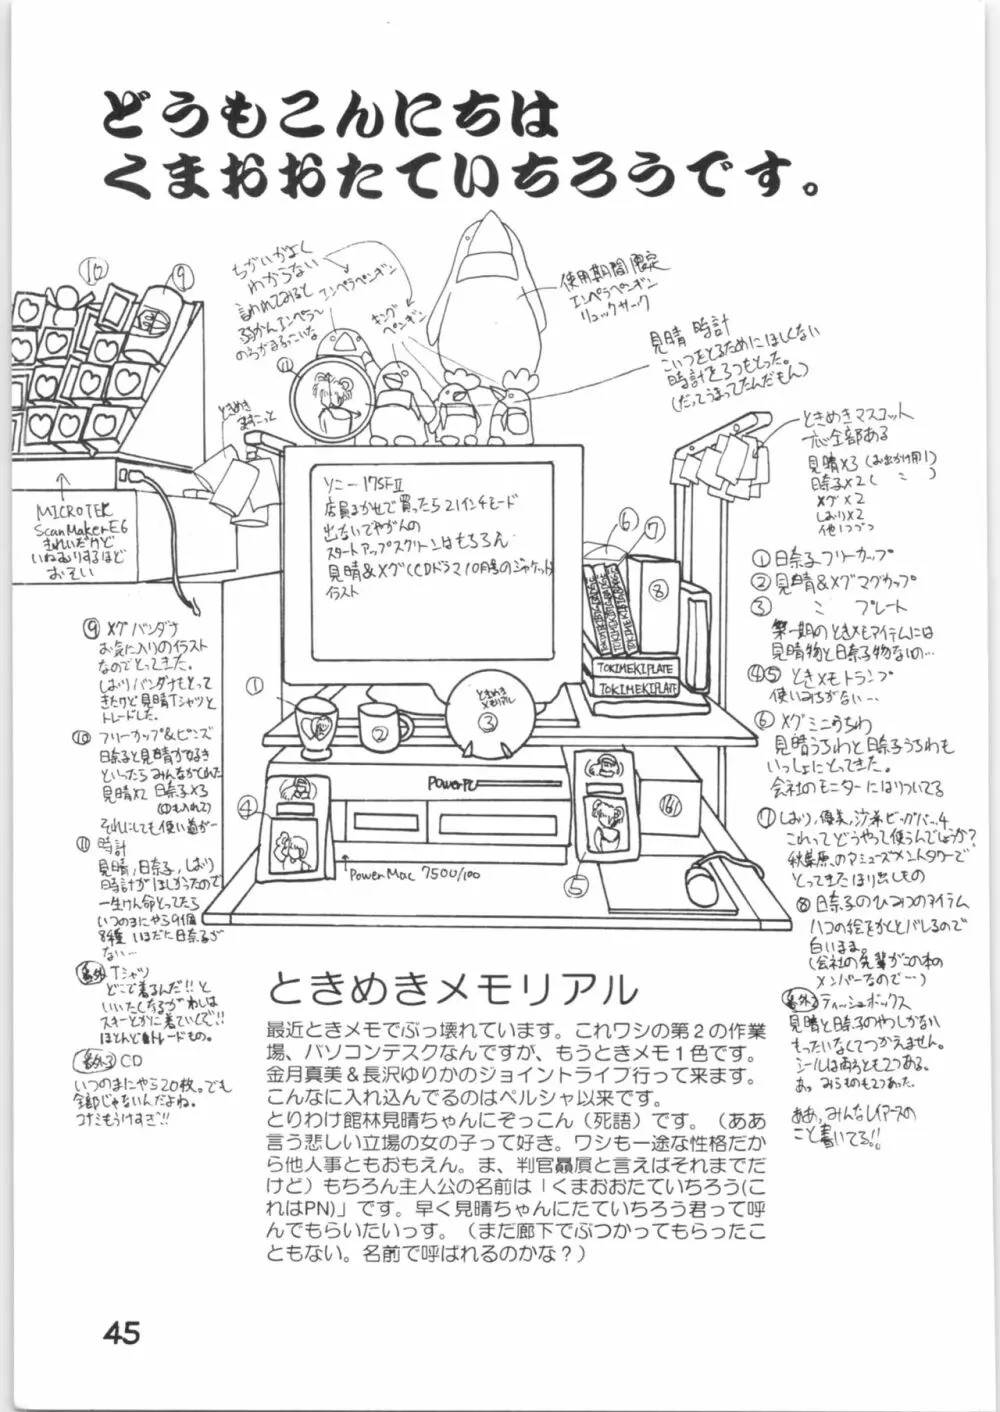 どうもこんにちは
くまおおたていちろうです。
⑩
⑨
ちがいがよく
わからない
言われてみると
エンペラペンギン
キング
ペンギン
使用期間限定
エンペラペンギン
リュックサーク
見晴 時計
こいつをとるためにほしくない
時計を3つもとった。
(だってうまってたんだもん)
⑪
ときめき
ときめきマスコット
全部ある
見晴×3 (お出かけ用1)
日奈子×2
メグ×2
しおり×2
他1コづつ
MICROTEK
ScanMakerE6
きれいだけど
いねむりするほど
おそい
ソニー17SFⅡ
店員まかせで買ったら21インチモード
出ないでやがんの
スタートアップスクリーンはもちろん
見晴&メグ(CDドラマ10月号のジャケット)
イラスト
⑥
⑦
⑧
TOKIMEKIPLATE
TOKIMEKIPLATE
①日奈子フリーカップ
②見晴&メグマグカップ
③ 〃 プレート
第一期のときメモアイテムには
見晴物と日奈子物ないの…
④⑤ ときメモトランプ
使いみちがない…
⑥ メグミニうちわ
見晴うちわと日奈子うちわも
いっしょにとってきた。
会社のモニターにはりついてる
⑦しおり,優美,沙希ビッグバ…
これってどうやって使うんでしょうか?
秋葉原のアミューズメントタワーで
とってきたほり出しもの
⑧日奈子のひみつのアイテム
ハコの絵をかくとバレるので
白いまま。
(会社の先輩がこの本の
メンバーなので…)
番外2 ティッシュボックス
見晴と日奈子のやつしかない
もったいなくてつかえません。
シールは両ろとも2つある。
あ。みらいものも2つあった。
ああ,みんなレイアースの
こと書いてる!!
⑨ メグバンダナ
お気に入りのイラスト
なのでとってきた。
しおりバンダナもとって
きたけど見晴Tシャツと
トレードした。
⑩ フリーカップ&ピンズ
日奈子と見晴が好き
といったらみんながくれた
見晴×2 日奈子×3
それにしても使い道がー
⑪ 時計
見晴,日奈子,しおり
時計がほしかったので
一生けん命とってたら
いつのまにやら9個
8種 いまだに日奈子が
ない…
番外 Tシャツ
どこで着るんだ!!と
いいたくなるがわしは
スキーとかに着ていくぞ!!
ほとんどトレードもの。
番外3 CD
いつのまにやら20枚。でも
全部じゃないんだよね。
コナミもうけすぎ!!
①
②
ときめき
メモリアル
③
④
⑤
PowerPC
PowerMac 7500/100
ときめきメモリアル
最近ときメモでぶっ壊れています。これワシの第2の作業
場、パソコンデスクなんですが、もうときメモ1色です。
金月真美&長沢ゆりかのジョイントライブ行って来ます。
こんなに入れ込んでるのはペルシャ以来です。
とりわけ館林見晴ちゃんにぞっこん(死語)です。(ああ
言う悲しい立場の女の子って好き。ワシも一途な性格だか
ら他人事ともおもえん。ま、判官贔屓と言えばそれまでだ
けど)もちろん主人公の名前は「くまおおたていちろう(こ
れはPN)」です。早く見晴ちゃんにたていちろう君って呼
んでもらいたいっす。(まだ廊下でぶつかってもらったこ
ともない。名前で呼ばれるのかな?)
45